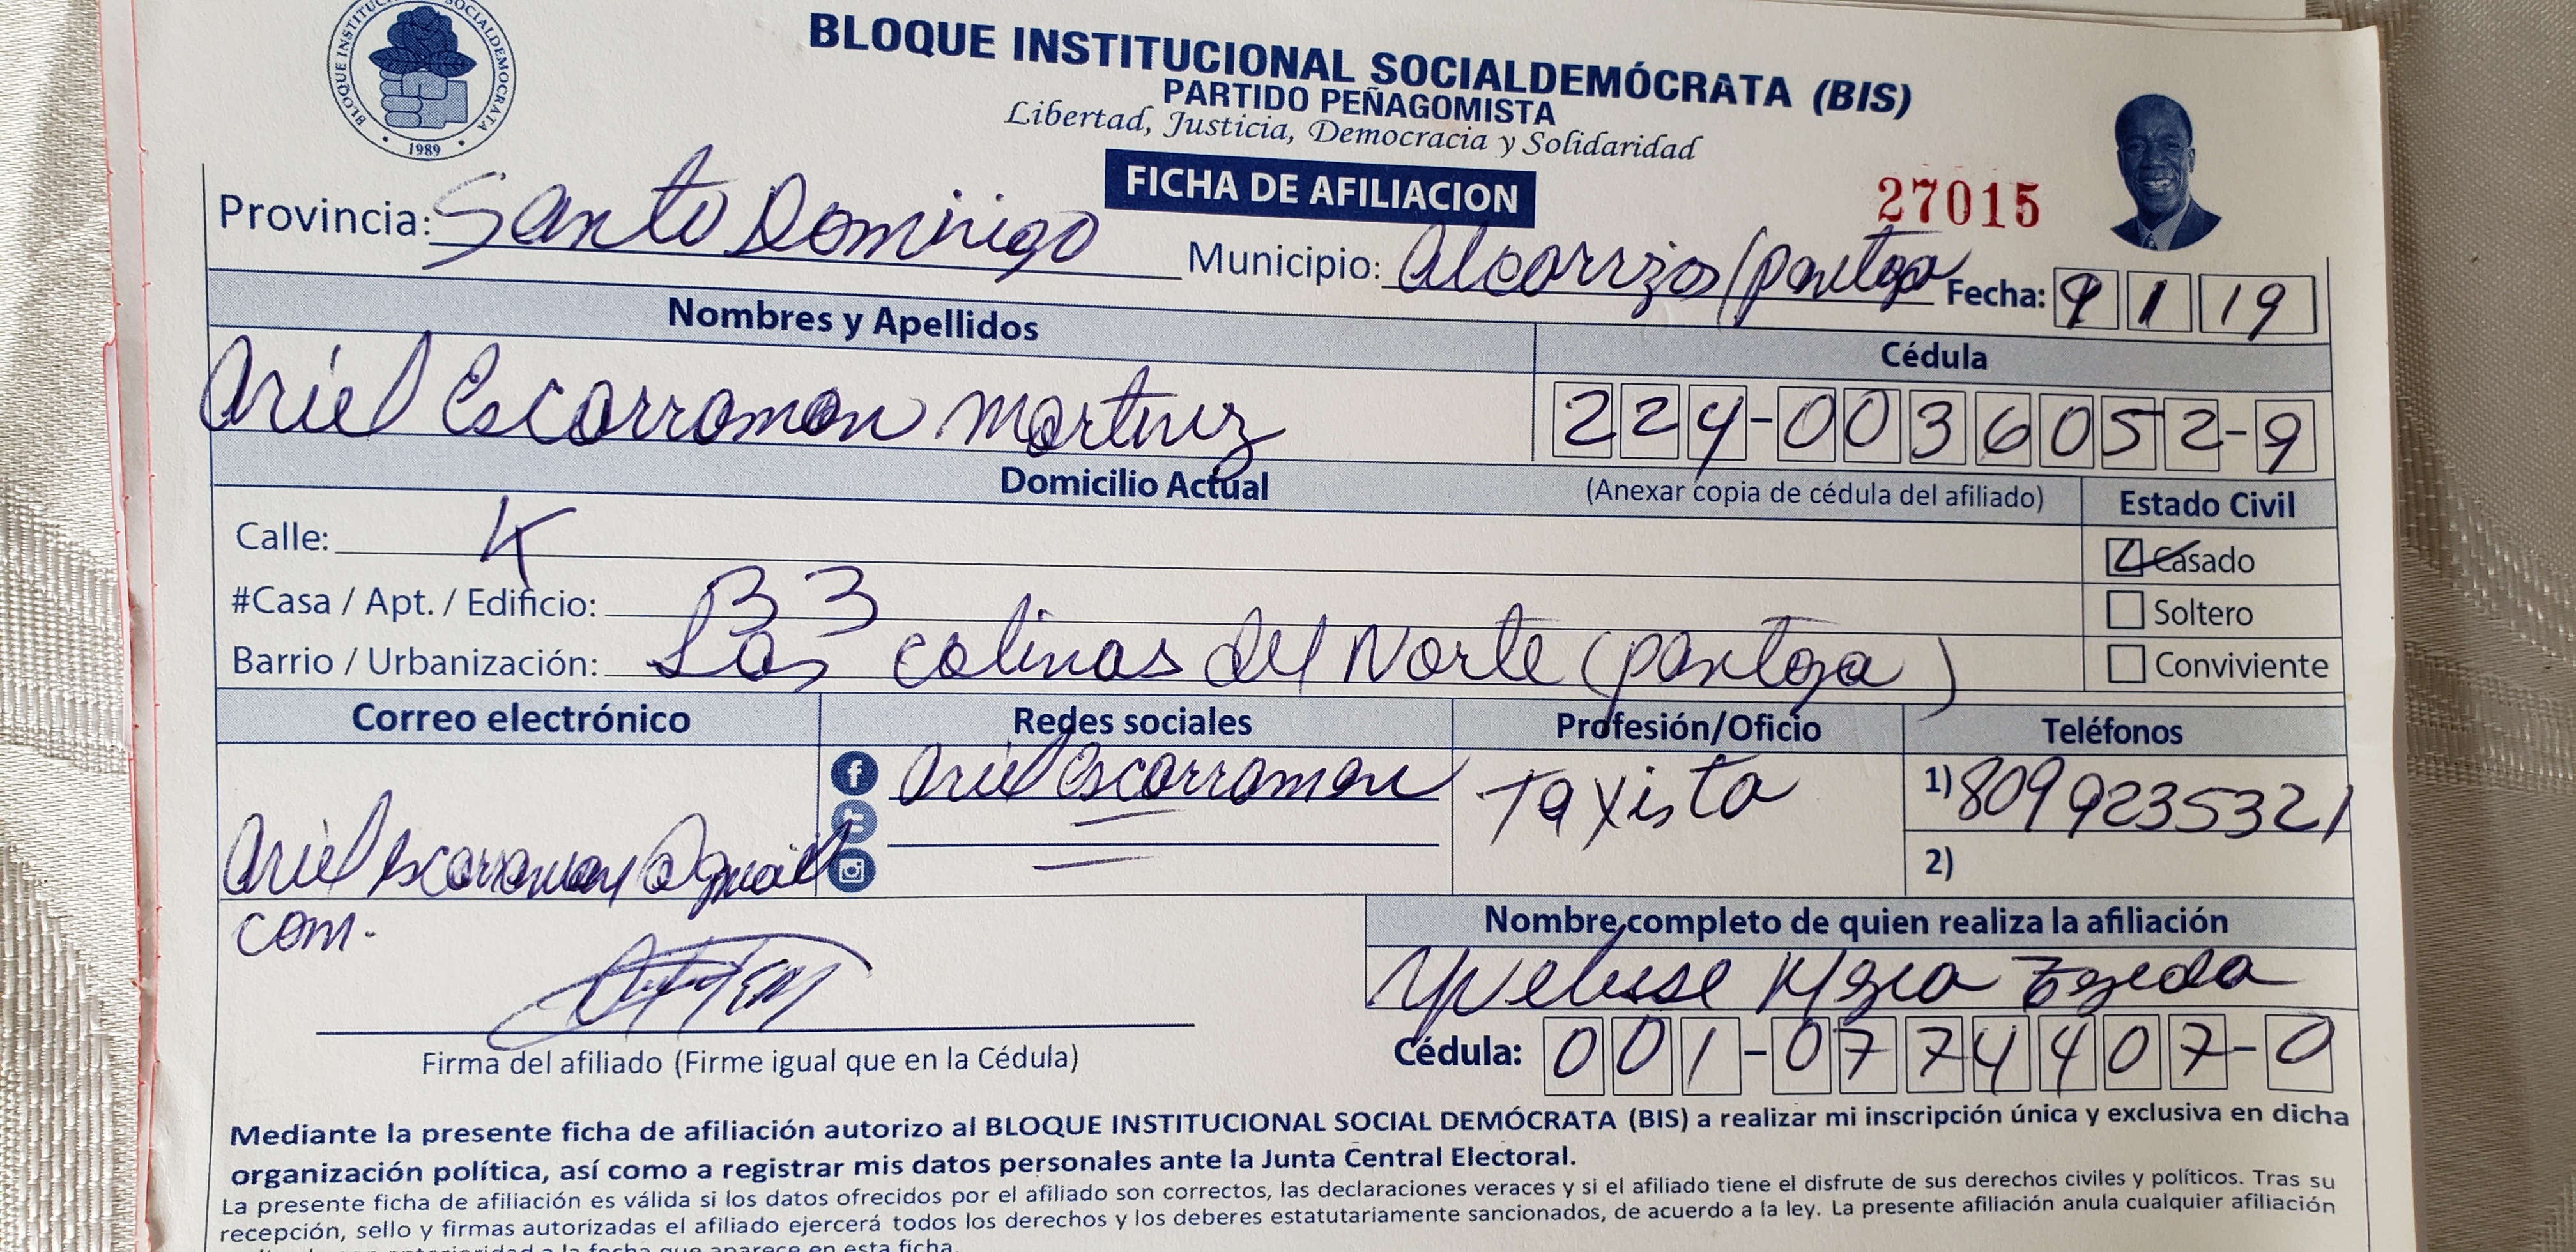 BLOQUE INSTITUCIONAL SOCIALDEMÓCRATA
1989
BLOQUE INSTITUCIONAL SOCIALDEMÓCRATA (BIS)
PARTIDO PEÑAGOMISTA
Libertad, Justicia, Democracia y Solidaridad
FICHA DE AFILIACION
27015
Provincia: Santo Domingo Municipio: Alcarrizos/pantoja Fecha: 9 1 19
Nombres y Apellidos
Cédula
Ariel Escarraman Martinez 224-0036052-9
Domicilio Actual (Anexar copia de cédula del afiliado) Estado Civil
Calle: K
Casado
#Casa / Apt. / Edificio: B 3
Soltero
Barrio / Urbanización: Las colinas del Norte (pantoja)
Conviviente
Correo electrónico Redes sociales Profesión/Oficio Teléfonos
Ariel Escarraman Taxista 1) 8099235321
2)
com.
Nombre completo de quien realiza la afiliación
Tejeda
Firma del afiliado (Firme igual que en la Cédula)
Cédula: 001-0774407-0
Mediante la presente ficha de afiliación autorizo al BLOQUE INSTITUCIONAL SOCIAL DEMÓCRATA (BIS) a realizar mi inscripción única y exclusiva en dicha
organización política, así como a registrar mis datos personales ante la Junta Central Electoral.
La presente ficha de afiliación es válida si los datos ofrecidos por el afiliado son correctos, las declaraciones veraces y si el afiliado tiene el disfrute de sus derechos civiles y políticos. Tras su
recepción, sello y firmas autorizadas el afiliado ejercerá todos los derechos y los deberes estatutariamente sancionados, de acuerdo a la ley. La presente afiliación anula cualquier afiliación
a la fecha que aparece en esta ficha.